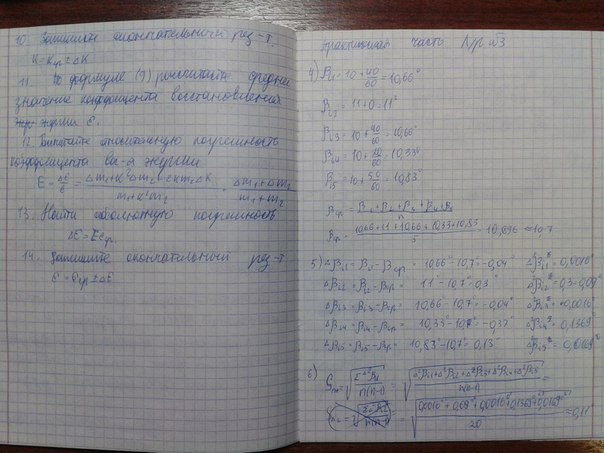 10. Запишем окончательный рез-т.
K = Kср ± ΔK
11. По формуле (9) рассчитайте среднее
значение коэффициента восстановления
энергии ε.
12. относительную погрешность
коэффициента вос-я энергии
E = Δε/ε = (Δm₁ + K²Δm₂ + 2Km₂ΔK)/(m₁ + K²m₂) + (Δm₁ + Δm₂)/(m₁ + m₂)
13. Найти абсолютную погрешность
Δε = Eεср.
14. Запишите окончательный рез-т
ε = εср ± Δε
Практическая часть Л/р №3
4) β₁₁ = 10 + 40/60 = 10,66°
β₁₂ = 11 + 0 = 11°
β₁₃ = 10 + 40/60 = 10,66°
β₁₄ = 10 + 20/60 = 10,33°
β₁₅ = 10 + 50/60 = 10,83°
βср = /n
βср = (10,66 + 11 + 10,66 + 10,33 + 10,83)/5 = 10,696 ≈ 10,7
5) Δβ₁₁ = β₁₁ − βср = 10,66 − 10,7 = −0,04° Δ²β₁₁ = 0,0016°
Δβ₁₂ = β₁₂ − βср = 11° − 10,7° = 0,3° Δ²β₁₂ = 0,3 = 0,09°
Δβ₁₃ = β₁₃ − βср = 10,66 − 10,7 = −0,04° Δ²β₁₃ = 0,0016°
Δβ₁₄ = β₁₄ − βср = 10,33 − 10,7° = −0,37° Δ²β₁₄ = 0,1369°
Δβ₁₅ = β₁₅ − βср = 10,83 − 10,7° = 0,13° Δ²β₁₅ = 0,0169°
6) = √(ΣΔ²β₁/n(n−1)) = √((Δ²β₁₁ + Δ²β₁₂ + Δ²β₁₃ + Δ²β₁₄ + Δ²β₁₅)/n(n−1)) =
= √((0,0016° + 0,09° + 0,0016° + 0,1369° + 0,0169°)/20) = 0,11°